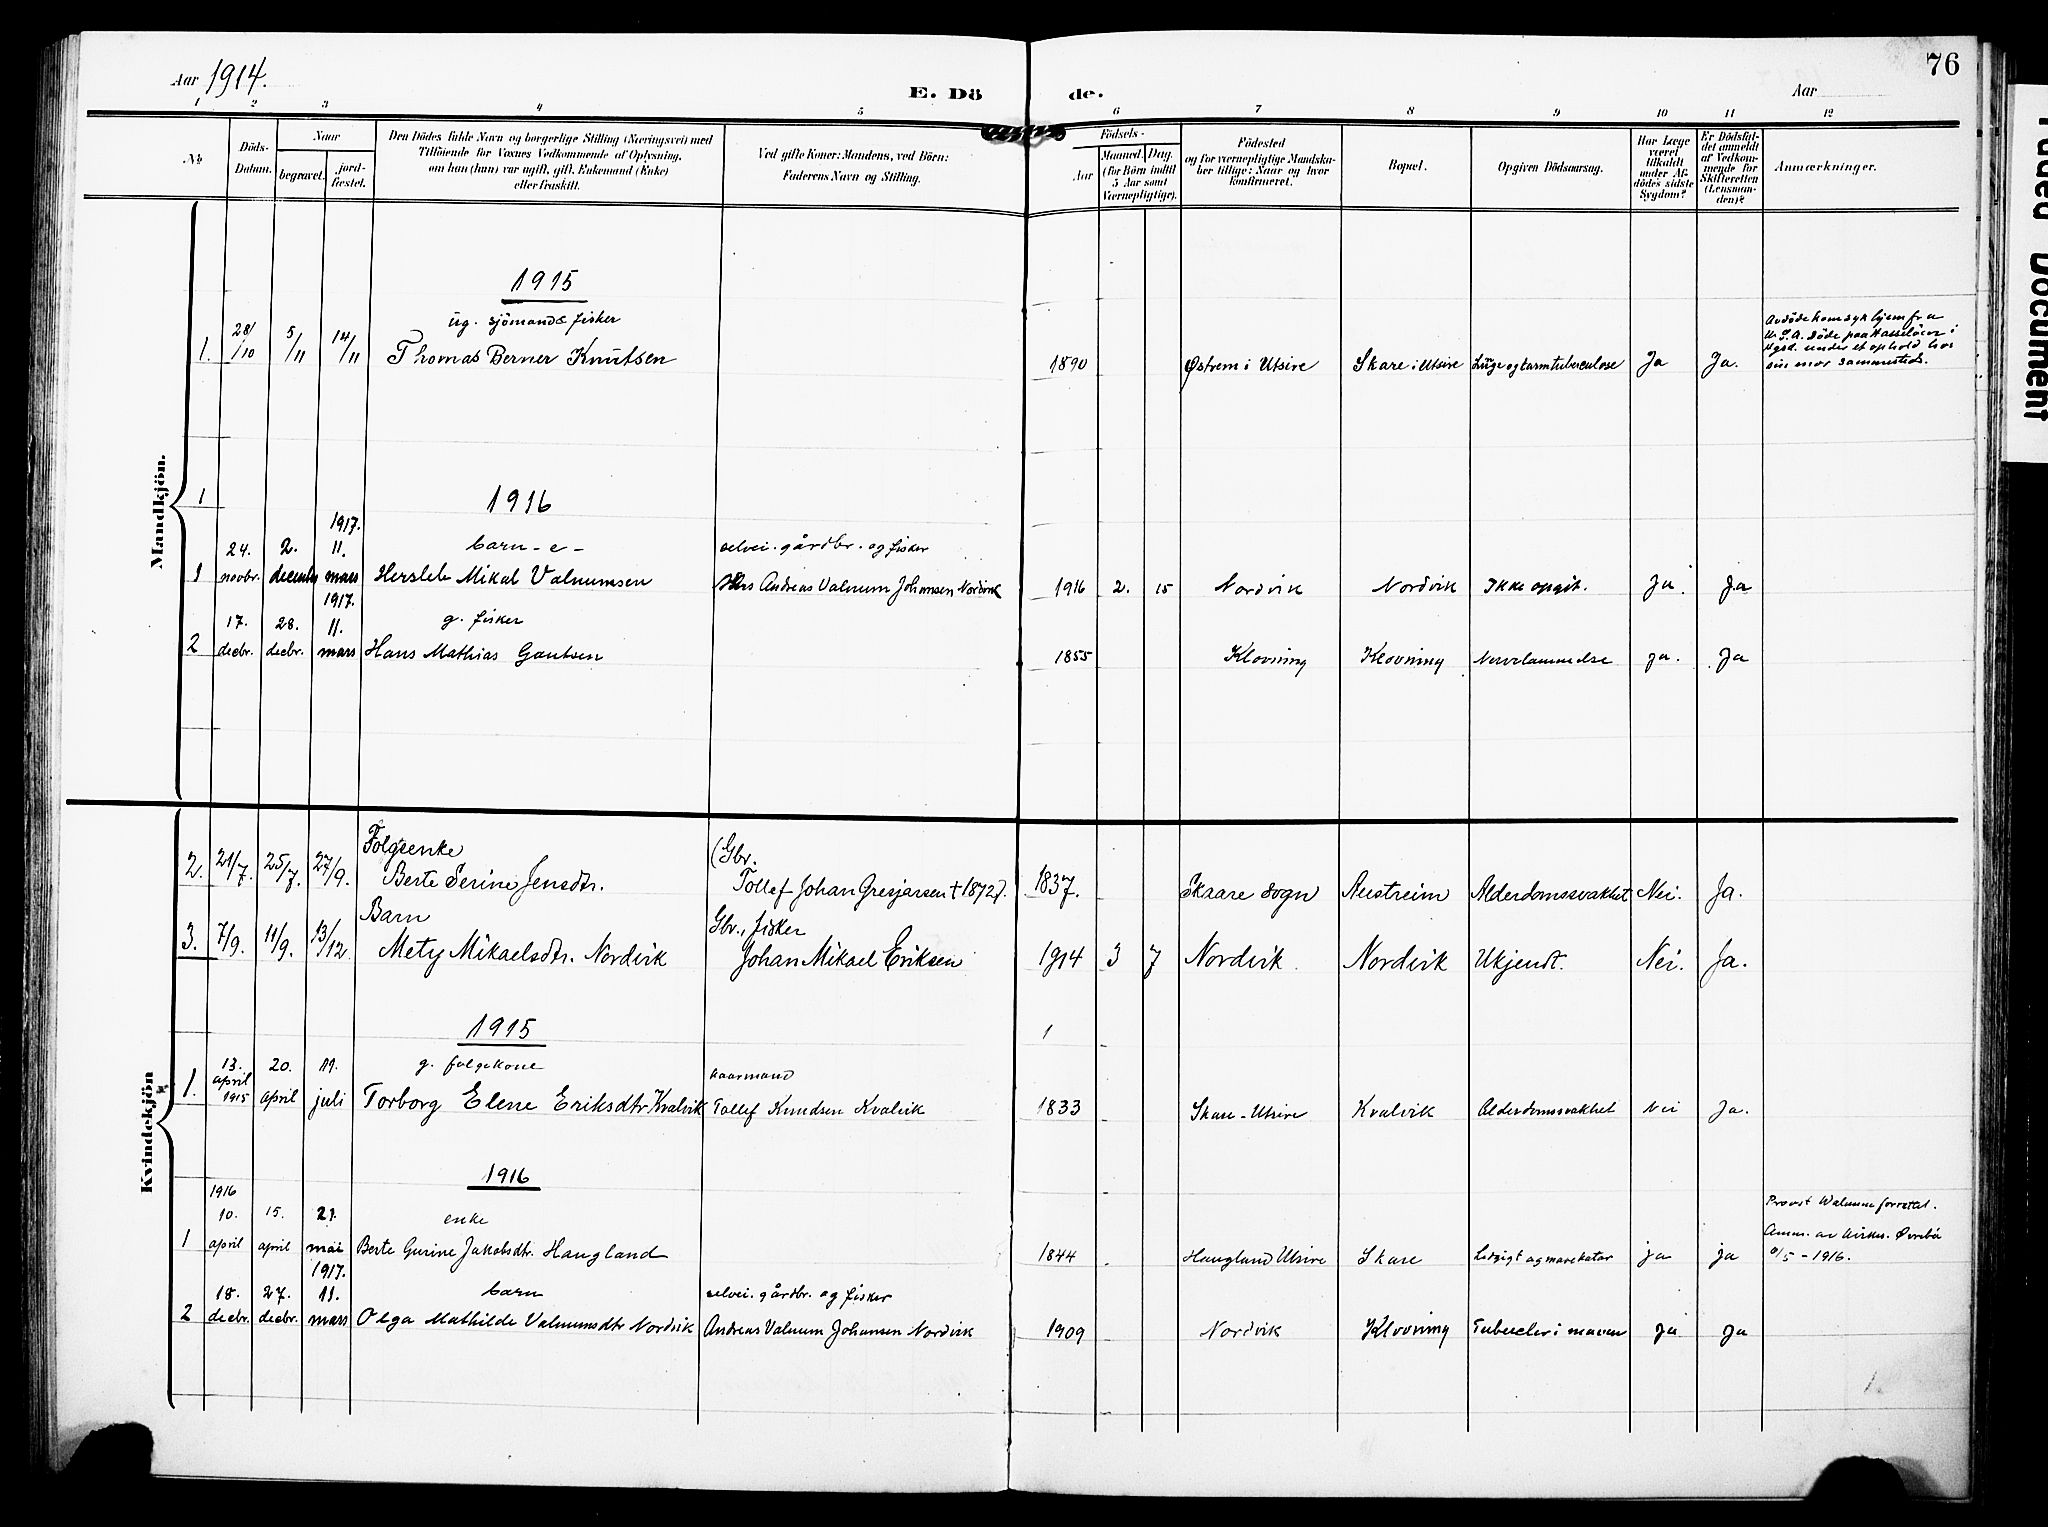 76
Aar 1914.
E. Dö de.
Aar
1 2 3 4 5 6 7 8 9 10 11 12
No
Döds-Datum.
Naar
begravet.
jord-fæstet.
Den Dödes fulde Navn og borgerlige Stilling (Næringsvei) med
Tilföiende for Voxnes Vedkommende af Oplysning,
om han (hun) var ugift, gift, Enkemand (Enke)
eller fraskilt.
Ved gifte Koner: Mandens, ved Börn:
Faderens Navn og Stilling.
Födsels-
Aar
Maaned. Dag.
(for Börn indtil
5 Aar samt
Værnepligtige).
Födested
og for værnepligtige Mandska-
ber tillige: Naar og hvor
konfirmeret.
Bopæl.
Opgiven Dödsaarsag.
Har Læge
været
tilkaldt
under Af-
dödes sidste
Sygdom?
Er Dödsfal-
det anmeldt
af Vedkom-
mende for
Skifteretten
(Lensman-
den)?
Anmærkninger.
Mandkjön.
1915
ug. sjömand & fisker
1. 28/10 5/11 14/11 Thomas Berner Knutsen 1890 Østrem i Utsire Skare i Utsire Lunge og tarmtuberculose Ja Ja.
Avdøde kom syk hjem fra
U.S.A. døde paa Hasseløen i
Hgsd. under et ophold hos
sin mor sammesteds.
1
1916
1917.
24. 2. 11. barn - e - selvei. gårdbr. og fisker
1 novbr. decembr mars Hersleb Mikal Valnumsen Andreas Valnum Johansen Nordvik 1916 2. 15 Nordvik Nordvik Ikke opgit. Ja. Ja
1917.
17. 28. 11. g. fisker
2 decbr. decbr. mars Hans Mathias Gautsen 1855 Klovning Klovning Nervelammelse ja. Ja
Kvindekjön
Folgeenke (Gbr.
2. 21/7. 25/7. 27/9. Berte Serine Jensdtr. Tollef Johan Gresjarsen † 1872). 1837. Skaare sogn Austreim Alderdomssvakhet Nei. Ja.
Barn Gbr., fisker
3. 7/9. 11/9. 13/12 Mety Mikaelsdtr. Nordvik Johan Mikael Eriksen 1914 3 7 Nordvik. Nordvik Ukjendt. Nei. Ja.
1915
1
13. 20. 11. g. folgekone kaarmand
1. april 1915 april juli Torborg Elene Eriksdtr Kvalvik Tollef Knudsen Kvalvik 1833 Skare - Utsire Kvalvik Alderdomssvakhet Nei Ja.
1916
1916
10. 15. 21. enke
1 april april mai Berte Gurine Jakobsdtr. Haugland 1844 Haugland Utsire Skare og mavekatar ja ja
Provst Walnum forrettet.
Anm. av
/5 - 1916.
1917.
18. 27. 11. barn selvei. gårdbr. og fisker
2 decbr. decbr. mars Olga Mathilde Valnumsdtr Nordvik Andreas Valnum Johansen Nordvik 1909 Nordvik Klovning Tubercler i maven ja Ja
1.
Faded Document